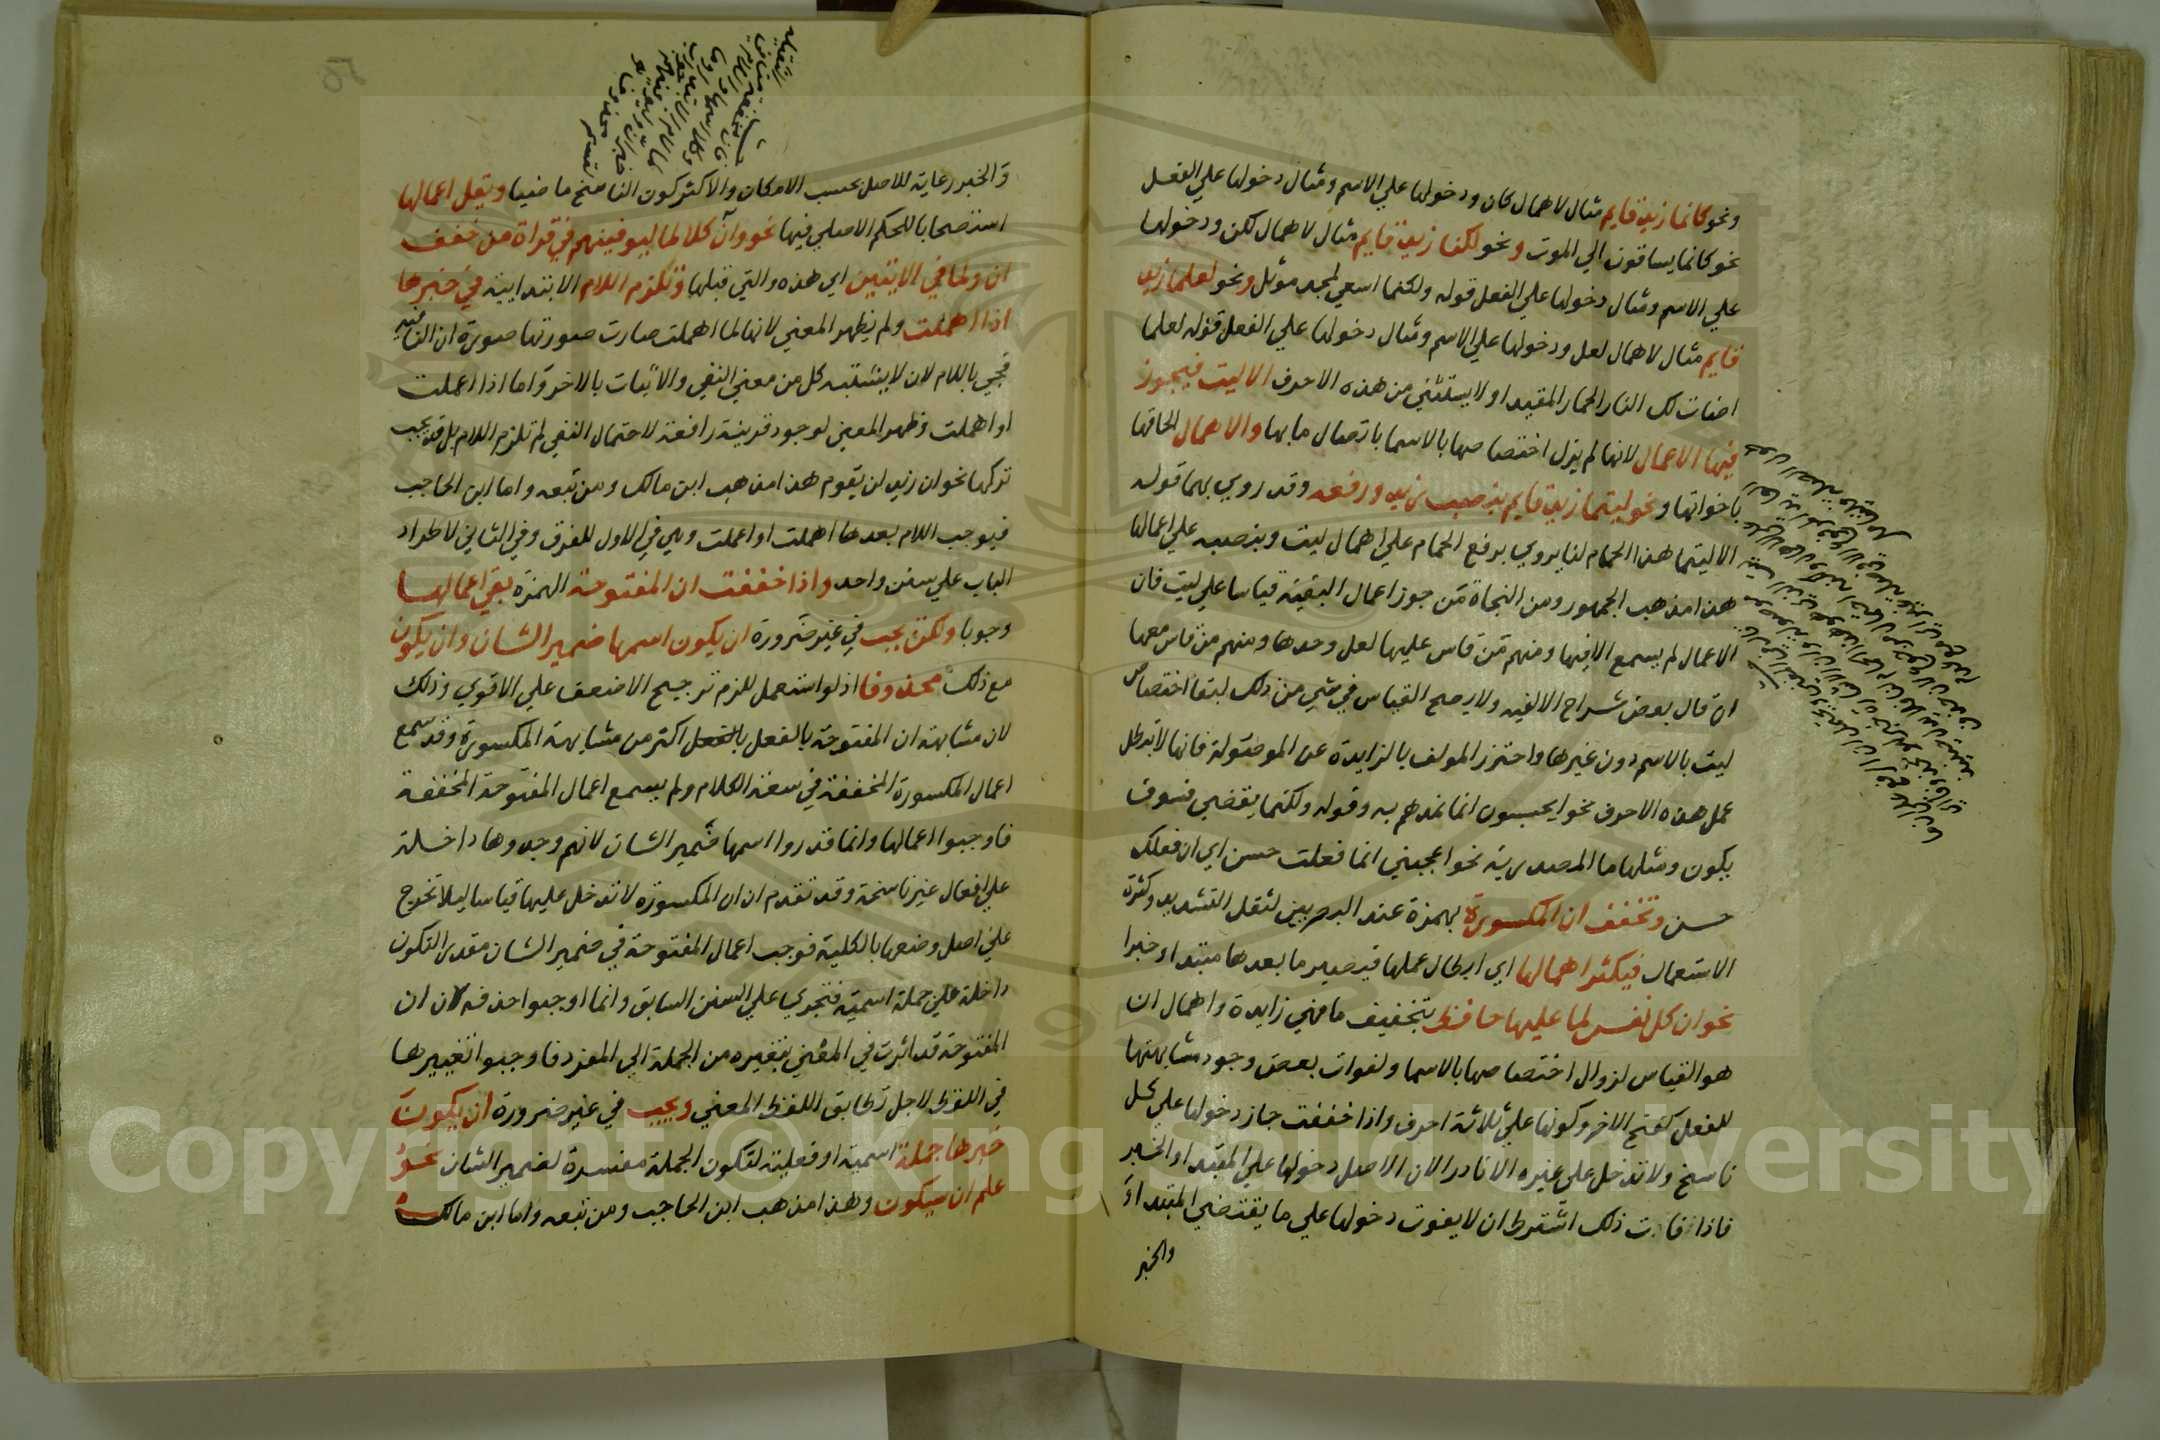 ونحو كانما زيد قايم مثال لاهمال كان ودخولها علي الاسم ومثال دخولها علي الفعل
نحو كانما يساقون الي الموت ونحو لكنما زيد قايم مثال لاهمال لكن ودخولها
علي الاسم ومثال دخولها علي الفعل قوله ولكنما اسعي لمجد موثل ونحو لعلما زيد
قايم مثال لاهمال لعل ودخولها علي الاسم ومثال دخولها علي الفعل قوله لعلما
اضات لك النار الحمار المقيدا ولا يستثني من هذه الاحرف الا ليت فيجوز
فيها الاعمال لانها لم يزل اختصاصها بالاسما باتصال ما بها والاهمال الحاقا
باخواتها ونحو ليتما زيد قايم بنصب زيد ورفعه وقد روي بهما قوله
الا ليتما هذا الحمام لنا يروي برفع الحمام علي اهمال ليت وبنصبه علي اعمالها
هذا مذهب الجمهور ومن النحاة من جوز اعمال البقية قياسا علي ليت فان
الاعمال لم يسمع الا فيها ومنهم من قاس عليها لعل وحدها ومنهم من قاس معها
ان قال بعض شراح الالفيه ولا يصح القياس في شي من ذلك لبقا اختصاص
ليت بالاسم دون غيرها واحترز المولف بالزايدة عن الموصولة فانها لا تبطل
عمل هذه الاحرف نحو ايحسبون انما نمدهم به وقوله ولكنما يقضي فسوف
يكون ومثلها ما المصدرية نحو اعجبني انما فعلت حسن اي ان فعلك
حسن وتخفف ان المكسورة بهمزة عند البصريين لثقل التشديد وكثرة
الاستعمال فيكثر اهمالها اي ابطال عملها فيصير ما بعدها مبتدا وخبرا
نحو ان كل نفس لما عليها حافظ بتخفيف ما فهي زايدة واهمال ان
هو القياس لزوال اختصاصها بالاسما ولفوات بعض وجود مشابهتها
للفعل كفتح الاخر وكونها علي ثلاثة احرف واذا خففت جاز دخولها علي كل
ناسخ ولا تدخل علي غيره الا نادرا لان الاصل دخولها علي المبتدا والخبر
فاذا فات ذلك اشترط ان لا يفوت دخولها علي ما يقتضي المبتدا و
والخبر
و الخبر رعاية للاصل بحسب الامكان والاكثر كون الناسخ ماضيا ويقل اعمالها
استصحابا للحكم الاصلي فيها نحو وان كلا لما ليوفينهم في قراة من خفف
ان ولما في الايتين اي هذه والتي قبلها وتلزم اللام الابتدايية في خبرها
اذا اهملت ولم يظهر المعني لانها لما اهملت صارت صورتها صورة ان النافيه
فجي باللام لان لا يشتبه كل من معني النفي والاثبات بالاخر واما اذا اعملت
او اهملت وظهر المعني لوجود قرينة رافعة لاحتمال النفي لم تلزم اللام بل قد يجب
تركها نحو ان زيد لن يقوم هذا مذهب ابن مالك ومن تبعه واما ابن الحاجب
فيوجب اللام بعدها اهملت او اعملت وهي في الاول للفرق وفي الثاني لاطراد
الباب علي سنن واحد واذا خففت ان المفتوحة الهمزة بقي اعمالها
وجوبا ولكن يجب في غير ضرورة ان يكون اسمها ضمير الشان وان يكون
مع ذلك محذوفا اذ لو استعمل للزم ترجيح الاضعف علي الاقوي وذلك
لان مشابهة ان المفتوحة بالفعل بالفعل اكثر من مشابهة المكسورة وقد سمع
اعمال المكسورة المخففة في سعة الكلام ولم يسمع اعمال المفتوحة المخففة
فاوجبوا اعمالها وانما قدروا اسمها ضمير الشان لانهم وجدوها داخلة
علي افعال غير ناسخة وقد تقدم ان ان المكسورة لا تدخل عليها قياسا ليلا تخرج
علي اصل وضعها بالكلية فوجب اعمال المفتوحة في ضمير الشان مقدر التكون
داخلة علي جملة اسمية فتجري علي السنن السابق وانما اوجبوا حذفه لان ان
المفتوحة قد اثرت في المعني بتغييره من الجملة الي المفرد فاوجبوا تغييرها
في اللفظ لاجل تطابق اللفظ المعني ويجب في غير ضرورة ان يكون
خبرها جملة اسمية او فعلية لتكون الجملة مفسرة لضمير الشان نحو
علم ان سيكون وهذا مذهب ابن الحاجب ومن تبعه واما ابن مالك
Copyright © King Saud University